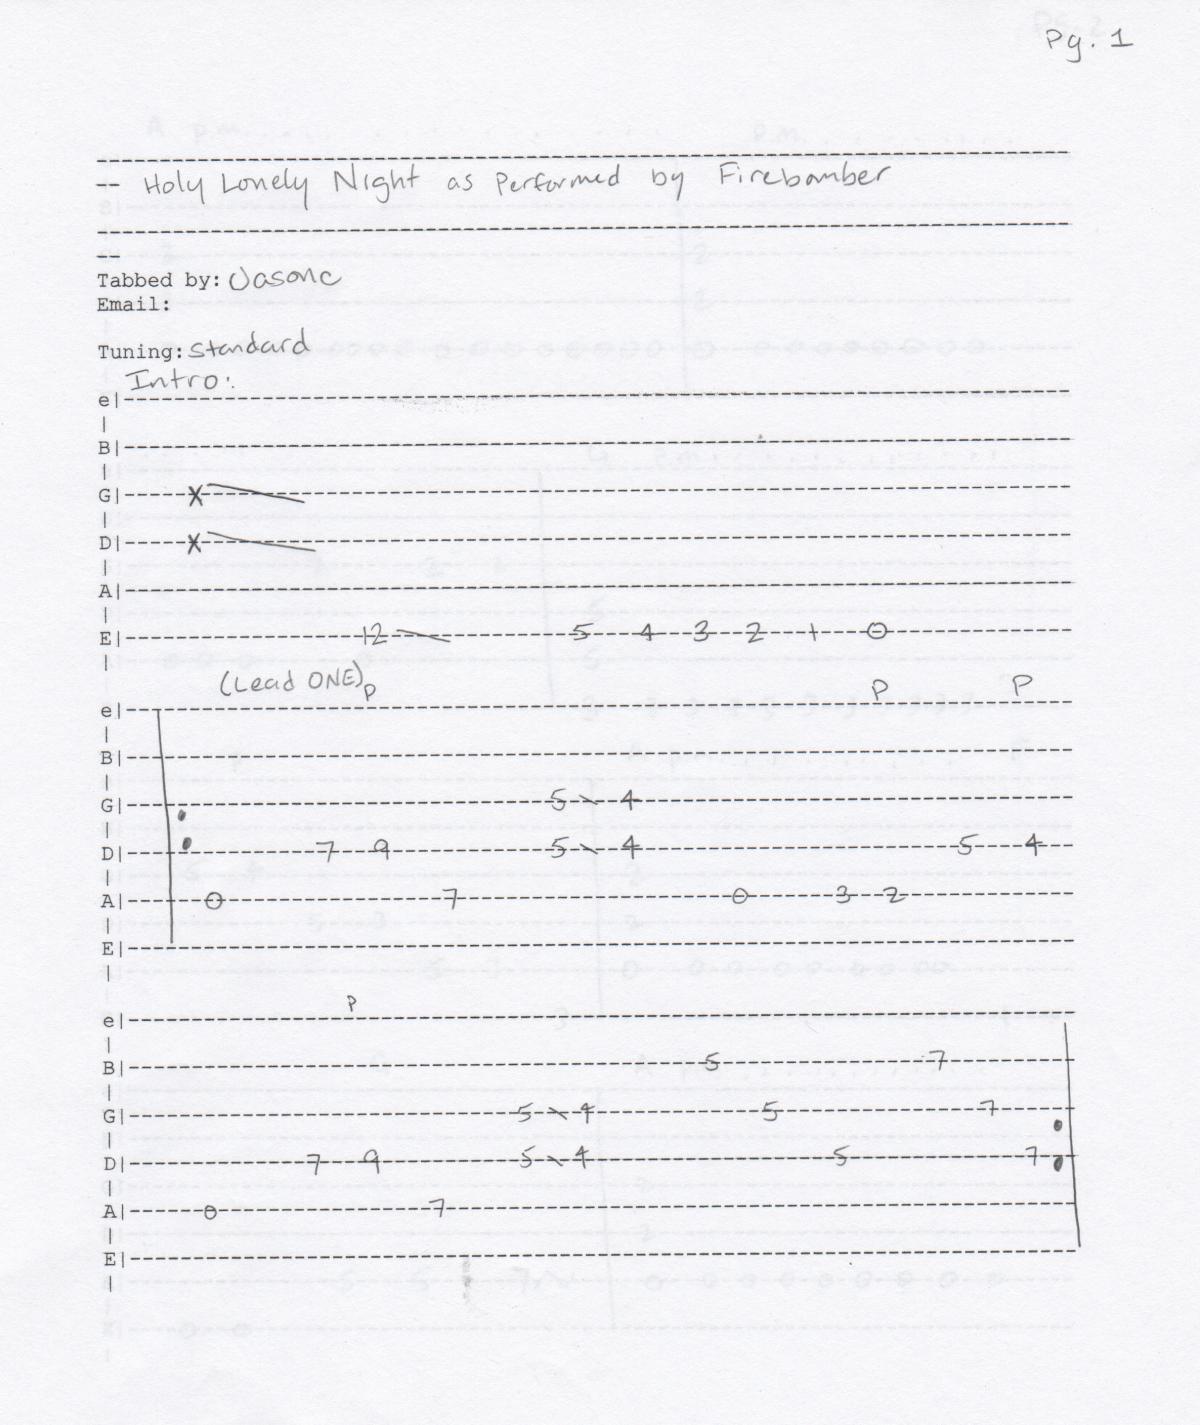 Pg. 1
-- Holy Lonely Night as Performed by Firebomber
--
Tabbed by: Jasonc
Email:
Tuning: Standard
Intro:
e|
B|
G| X
D| X
A|
E| 12 5 4 3 2 1 0
(Lead ONE) P P P
e|
B|
G| 5 \ 4
D| 7 9 5 \ 4 5 4
A| 0 7 0 3 2
E|
P
e|
B| 5 7
G| 5 \ 4 5 7
D| 7 9 5 \ 4 5 7
A| 0 7
E|